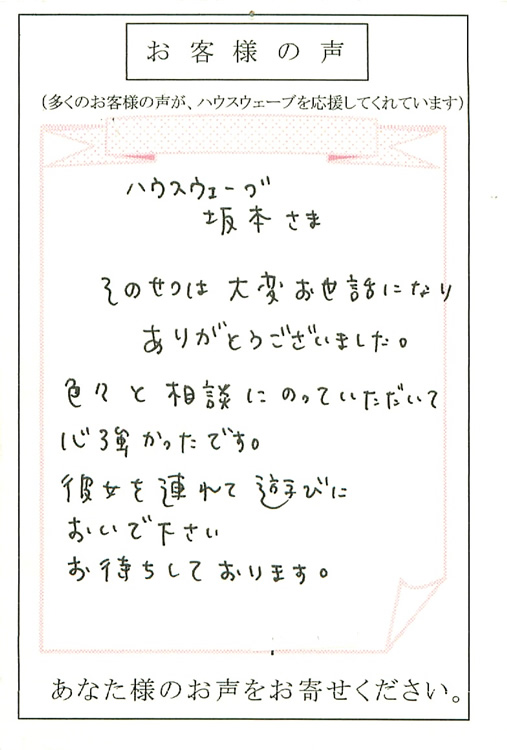 お客様の声
（多くのお客様の声が、ハウスウェーブを応援してくれています）
ハウスウェーブ
坂本さま
そのせつは 大変お世話になり
ありがとうございました。
色々と相談にのっていただいて
心強かったです。
彼女を連れて遊びに
おいで下さい
お待ちしております。
あなた様のお声をお寄せください。